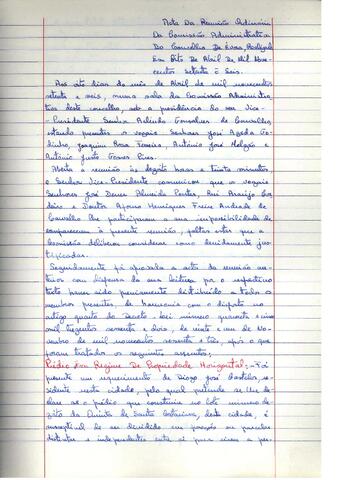 Acta Da Reunião Ordinária
Da Comissão Administrativa
Do Concelho De
Em Oito De Abril De Mil Nove-
centos Setenta E Seis.
Aos oito dias do mês de Abril de mil novecentos
setenta e seis, numa sala da Comissão Administra-
tiva deste concelho, sob a presidência do seu Vice-
-Presidente Senhor Arlindo Gonçalves de Carvalho,
estando presentes os vogais Senhores José Agada Go-
dinho, Joaquim Rosa Ferreira, António José Melgão e
António Justo Gomes Pires.
Aberta a reunião às dezoito horas e trinta minutos,
o Senhor Vice-Presidente comunicou que os vogais
Senhores José Denis Almeida Pontes, Rui Araújo Cor-
deiro e Doutor Afonso Henriques Freire Andrade de
Carvalho lhe participaram a sua impossibilidade de
comparecerem à presente reunião, faltas estas que a
Comissão deliberou considerar como devidamente jus-
tificadas.
Seguidamente foi aprovada a acta da reunião an-
terior com dispensa da sua leitura por o respectivo
texto haver sido previamente distribuído a todos os
membros presentes, de harmonia com o disposto no
artigo quarto do Decreto-Lei número quarenta e cinco
mil trezentos sessenta e dois, de vinte e um de No-
vembro de mil novecentos sessenta e três, após o que
foram tratados os seguintes assuntos:
Prédio Em Regime De Propriedade Horizontal: - Foi
presente um requerimento de Diogo José Castelos, re-
sidente nesta cidade, pelo qual pretende se lhe de-
clare se o prédio que construiu no lote número de-
zoito da Quinta de Santa Catarina, desta cidade, é
susceptível de ser dividido em fracções ou parcelas
distintas e independentes entre si para vir a per-